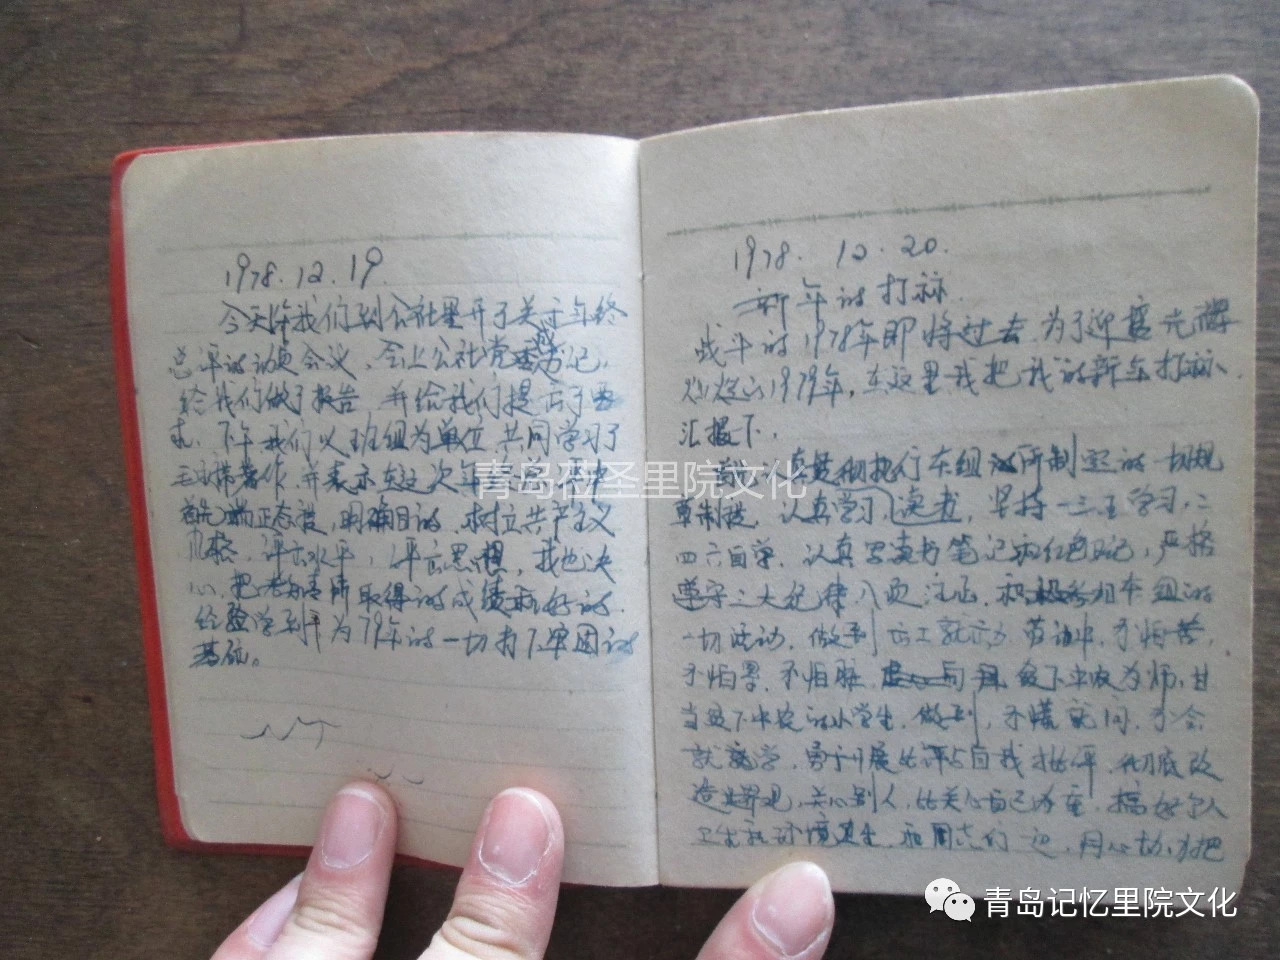 1978.12.19.
今天上午我们到公社里开了关于年终
总评的动员会议，会上公社党委书记，
给我们做了报告，并给我们提出了要
求，下午我们以班组为单位共同学习了
毛主席著作，并表示在这次年终总评中
首先端正态度，明确目的，树立共产主义
风格，评出水平，评出思想，我也决
心，把取得的成绩和好的
经验学到手为79年的一切打下牢固的
基础。
1978.12.20.
新年的打祘
战斗的1978年即将过去，为了迎接光辉
灿烂的1979年，在这里我把我的新年打祘、
汇报下，
首先，在执行本组的所制定的一切规
章制度，认真学习、读书，坚持一三五学习，二
四六自学，认真写读书笔记和红色日记，严格
遵守三大纪律八项注意，积极参加本组的
一切活动，做到出工就出力，劳动中，不怕苦，
不怕累，不怕脏，贫下中农为师，甘
当贫下中农的小学生，做到，不懂就问，不会
就学，勇于开展批评与自我批评，彻底改
造世界观，关心别人，比关心自己为重，搞好个人
卫生和环境卫生，和同志们一起，同心协力把
青岛蓝圣里院文化
青岛记忆里院文化